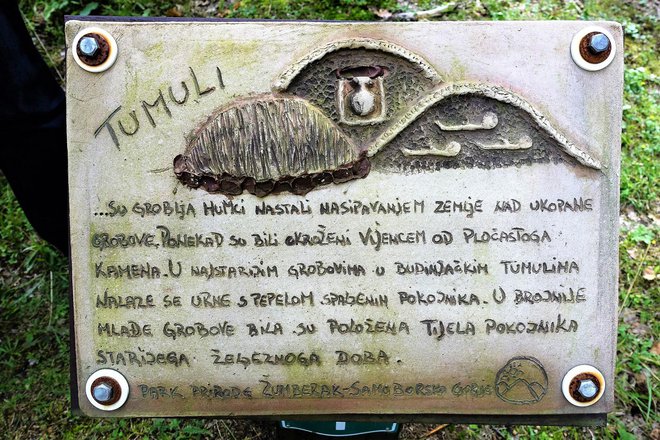 TUMULI
...SU GROBLJA HUMCI NASTALI NASIPAVANJEM ZEMLJE NAD UKOPANE
GROBOVE. PONEKAD SU BILI OKRUŽENI VIJENCEM OD PLOČASTOGA
KAMENA. U NAJSTARIJIM GROBOVIMA U BUDINJAČKIM TUMULIMA
NALAZE SE URNE S PEPELOM SPALJENIH POKOJNIKA. U BROJNIJE
MLAĐE GROBOVE BILA SU POLOŽENA TIJELA POKOJNIKA
STARIJEGA ŽELJEZNOGA DOBA.
PARK PRIRODE ŽUMBERAK-SAMOBORSKO GORJE